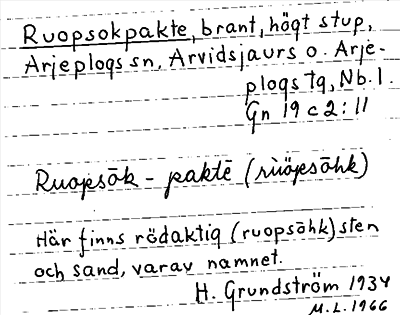 Ruopsokpakte, brant, högt stup,
Arjeplogs sn, Arvidsjaurs o. Arje-
plogs tg, Nb. l.
Gn 19 c 2: 11
Ruopsāk - paktē (rùo̯psāhk)
Här finns rödaktig (ruopsāhk) sten
och sand, varav namnet.
H. Grundström 1934
M. L. 1966